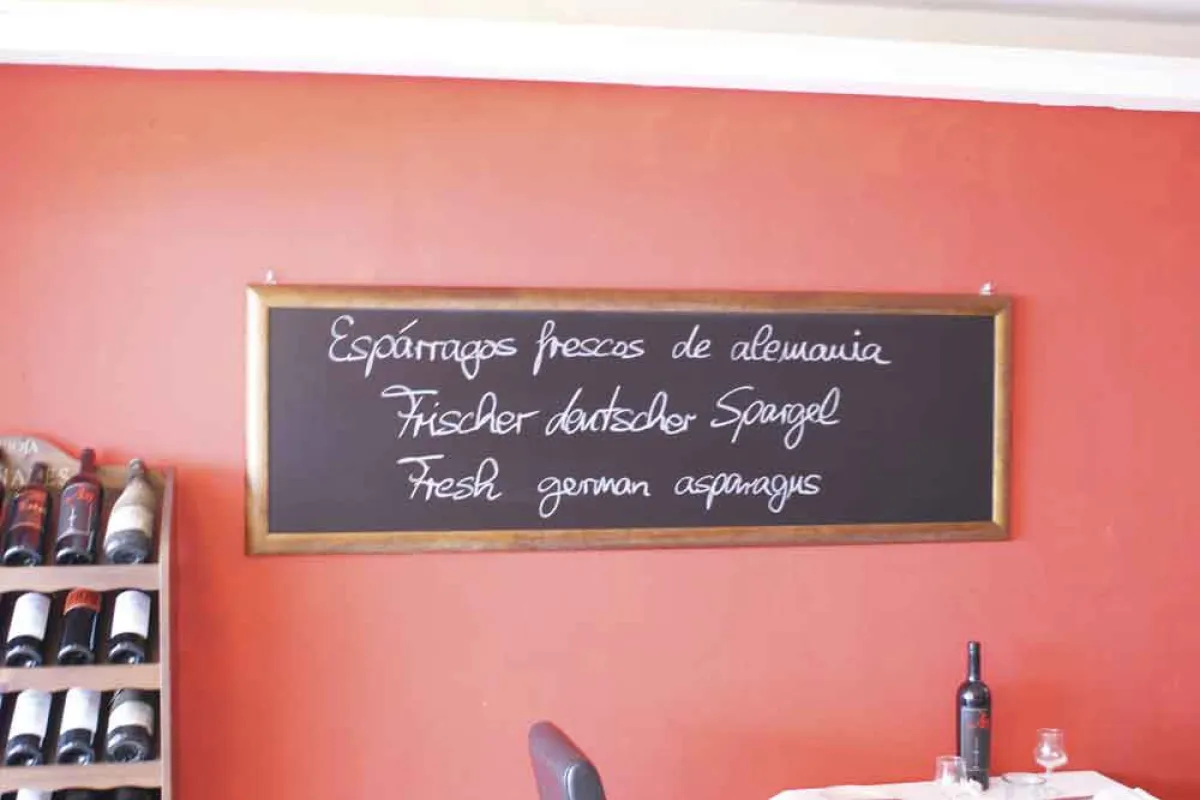 Espárragos frescos de alemania
Frischer deutscher Spargel
Fresh german asparagus